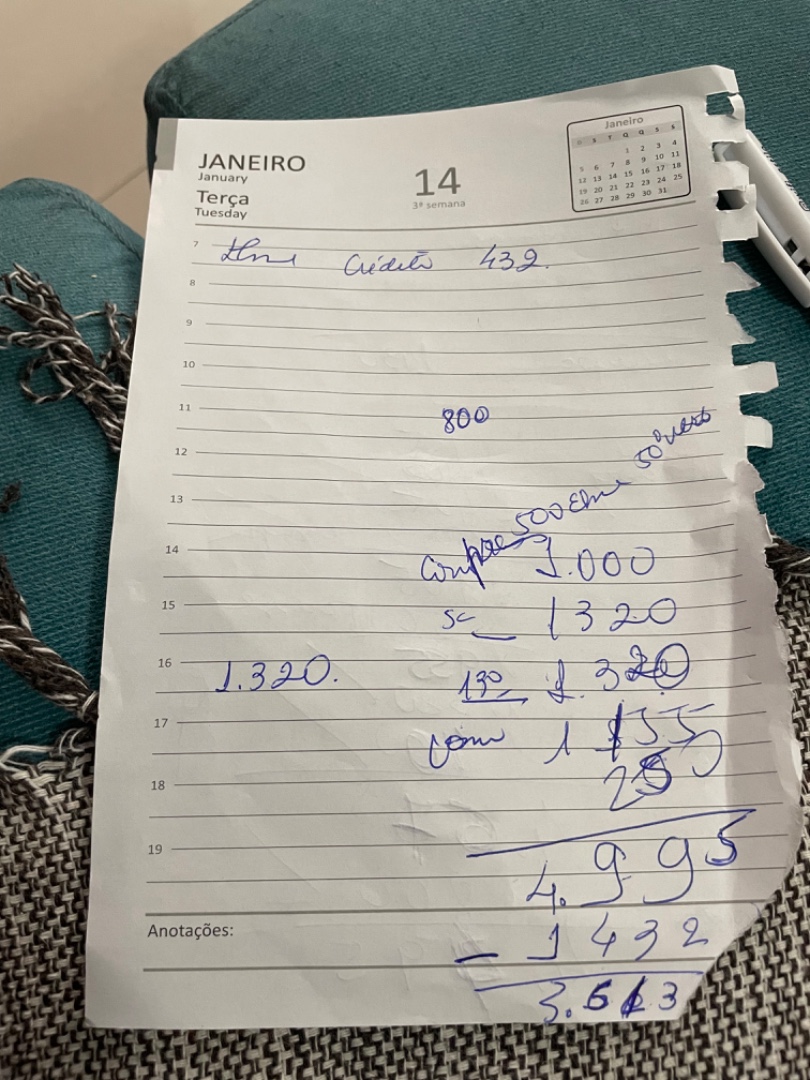 JANEIRO
January
Terça
Tuesday
14
3ª semana
Janeiro
D S T Q Q S S
1 2 3 4
5 6 7 8 9 10 11
12 13 14 15 16 17 18
19 20 21 22 23 24 25
26 27 28 29 30 31
7
Crédito 432.
8
9
10
11
800
12
13
500
50
14
1.000
15
1320
16
1.320.
13º 1.320
17
18
19
4.995
Anotações:
- 1432